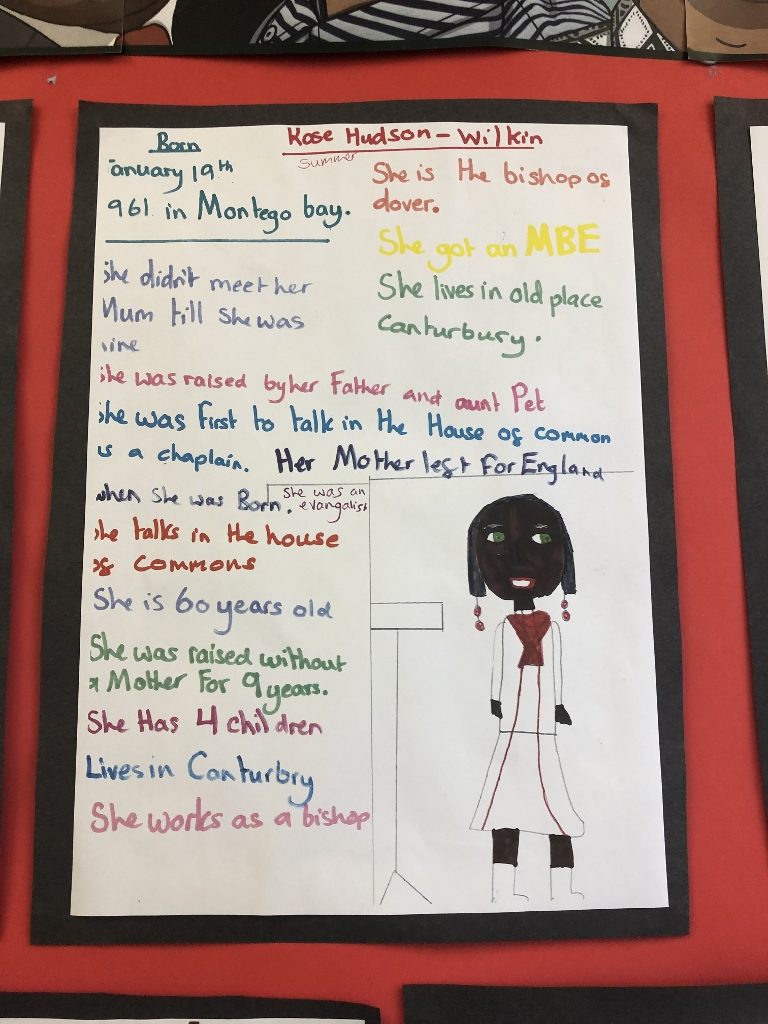 Born
Rose Hudson-Wilkin
Summer
anuary 19th
961 in Montego bay.
She is the bishop of
dover.
She got an MBE
She lives in old place
Canturbury.
she didn't meet her
Mum till she was
ine
she was raised by her Father and aunt Pet
She was first to talk in the House of common
as a chaplain. Her Mother left for England
when she was Born. she was an
evangalist
she talks in the house
of commons
She is 60 years old
She was raised without
a Mother For 9 years.
She Has 4 children
Lives in Canturbry
She works as a bishop